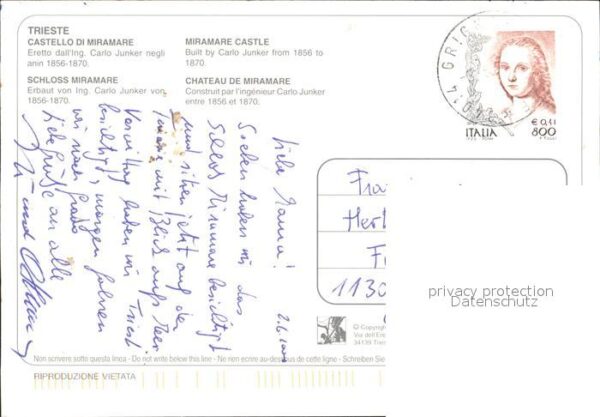 TRIESTE
CASTELLO DI MIRAMARE
Eretto dall'Ing. Carlo Junker negli
anin 1856-1870.
MIRAMARE CASTLE
Built by Carlo Junker from 1856 to
1870.
SCHLOSS MIRAMARE
Erbaut von Ing. Carlo Junker von
1856-1870.
CHATEAU DE MIRAMARE
Construit par l'ingénieur Carlo Junker
entre 1856 et 1870.
Liebe Mama!
Soeben haben wir das
Schloß Miramare besichtigt
und sitzen jetzt auf der
Terrasse mit Blick aufs Meer
Vormittag haben wir Triest
besichtigt, morgen fahren
wir nach Grado
Liebe Grüße an alle
und
€ 0,41
ITALIA
800
Fra
Her
F
1130
privacy protection
Datenschutz
© Copyrig
Via dell'Ere
34139 Tries
Non scrivere sotto questa linea - Do not write below this line - Ne non ecrire au-dessous de cette ligne - Schreiben Sie
RIPRODUZIONE VIETATA